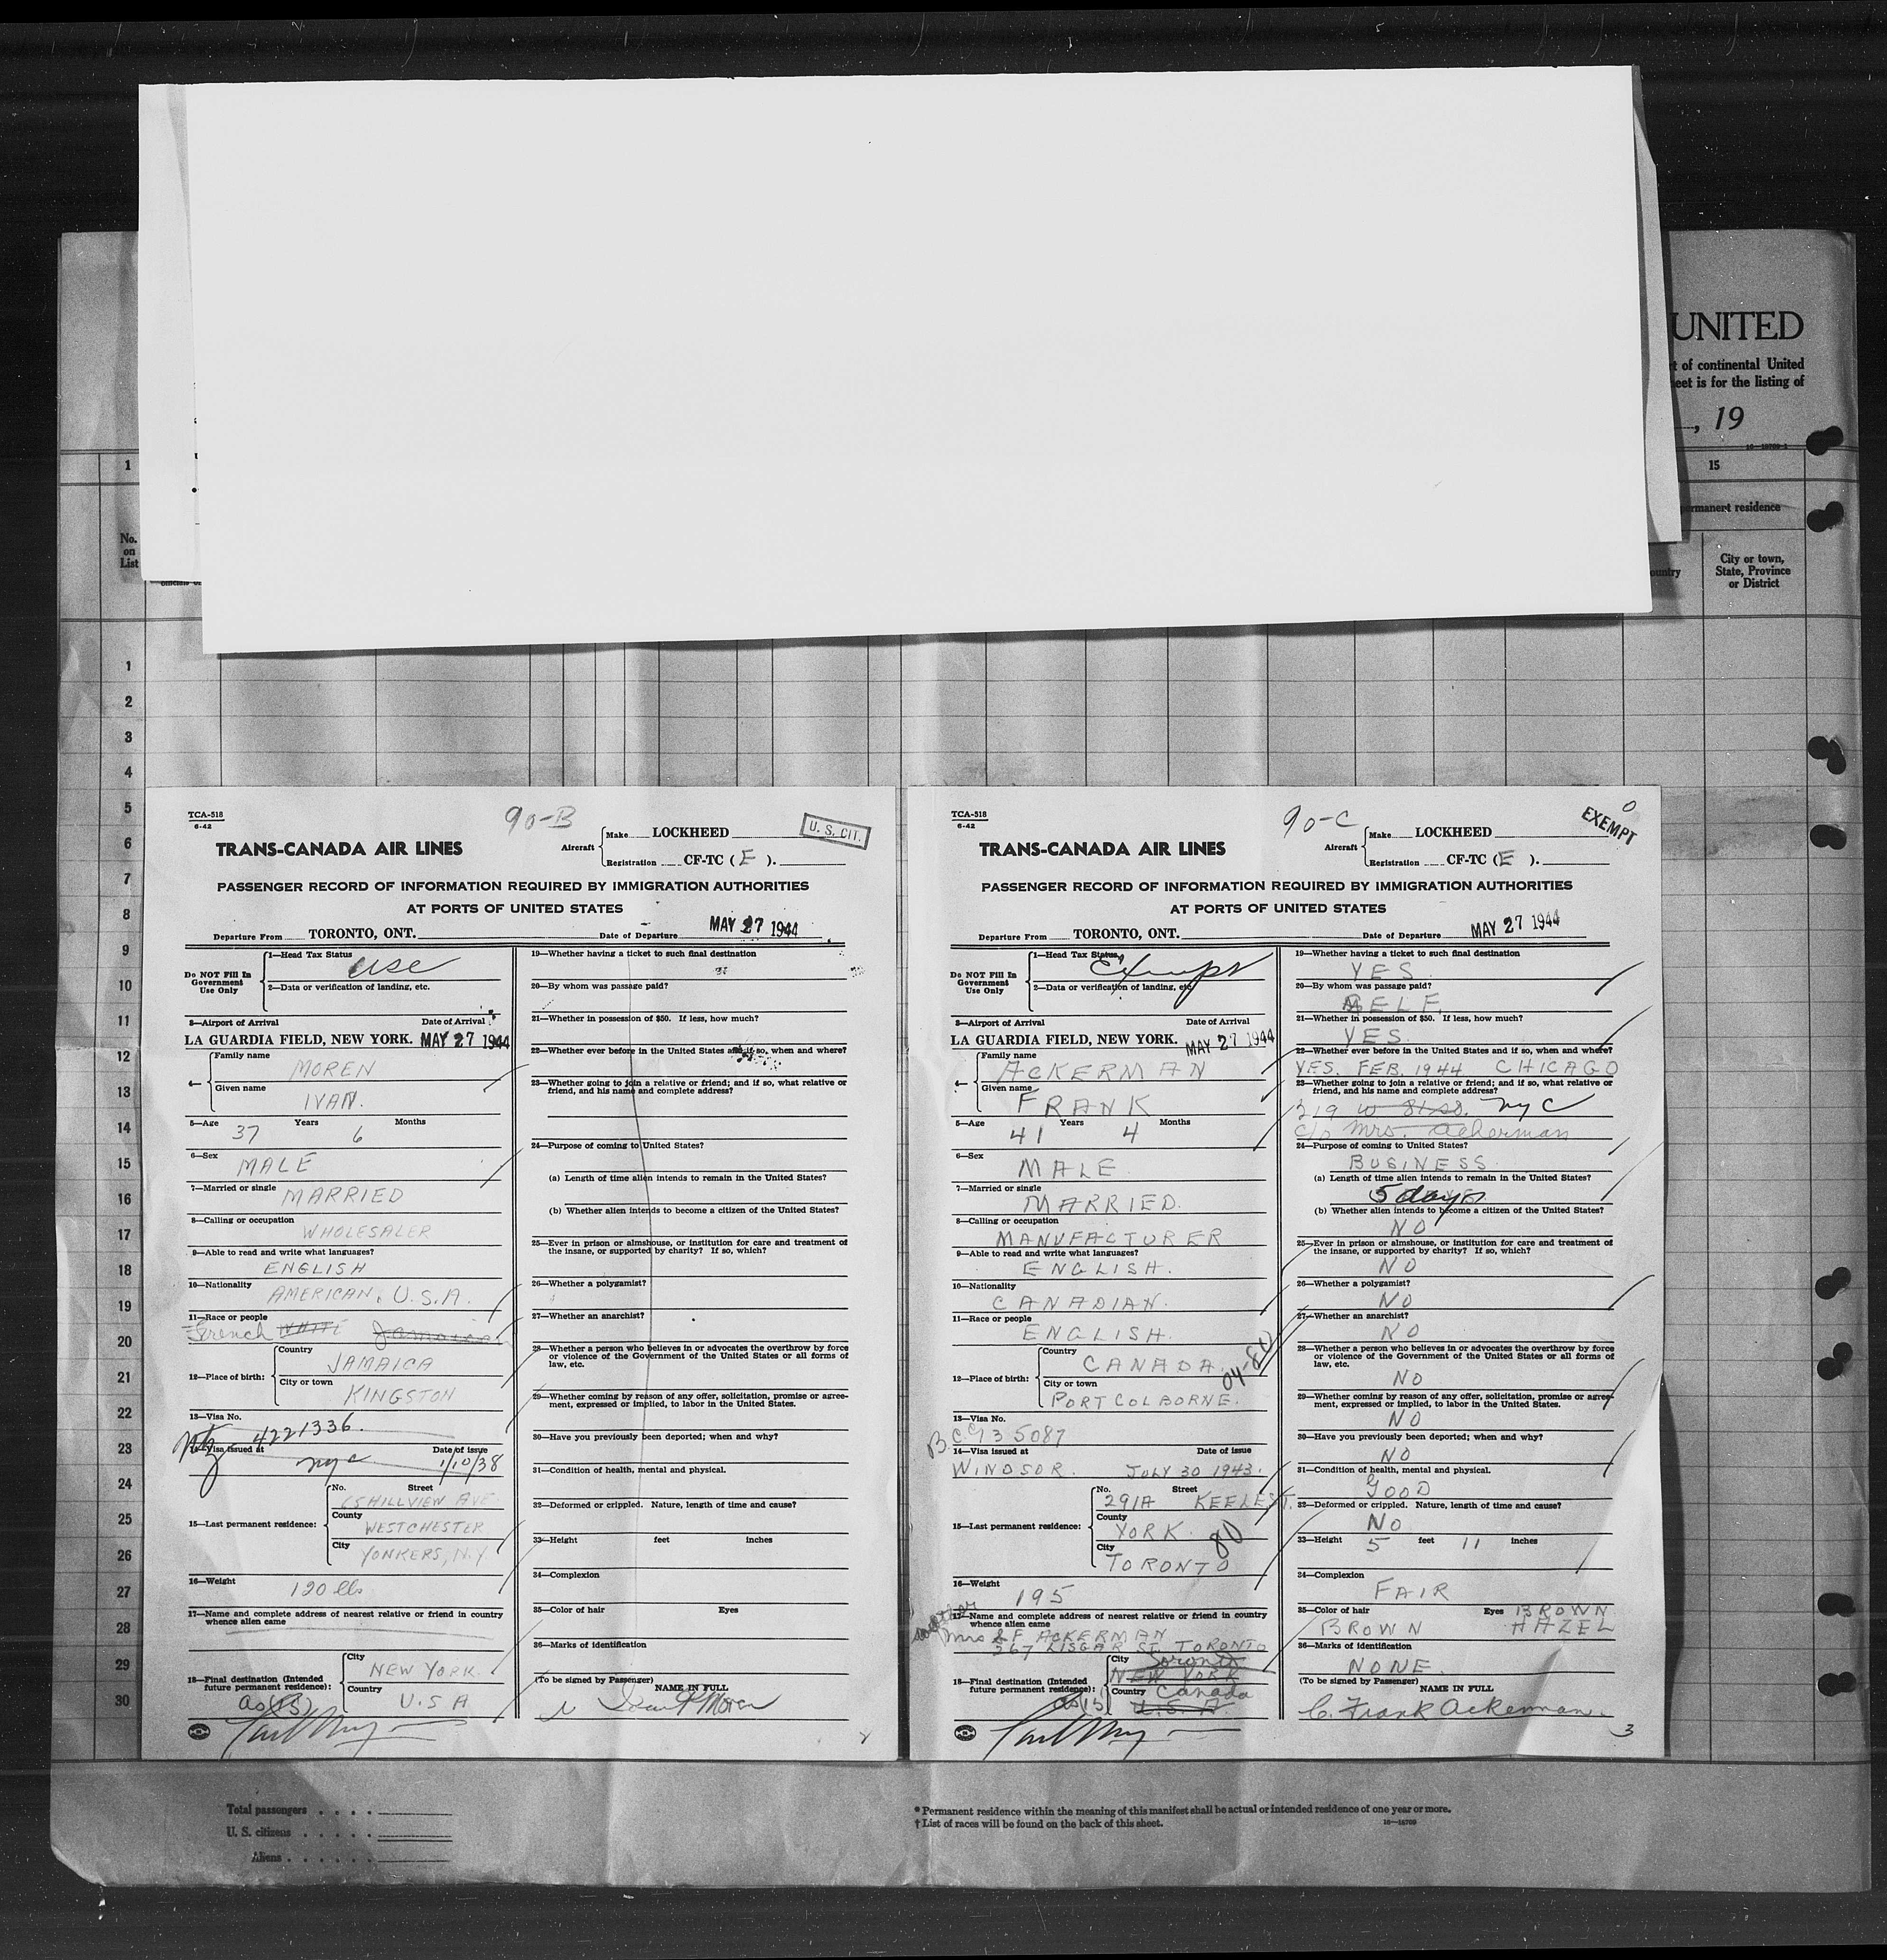 UNITED
t of continental United
eet is for the listing of
, 19
1
15
ermanent residence
No.
on
List
ountry
City or town,
State, Province
or District
1
2
3
4
5
6
7
8
9
10
11
12
13
14
15
16
17
18
19
20
21
22
23
24
25
26
27
28
29
30
TCA-518
6-42
90-B
U. S. CIT.
TRANS-CANADA AIR LINES
Aircraft
Make LOCKHEED
Registration CF-TC ( E ).
PASSENGER RECORD OF INFORMATION REQUIRED BY IMMIGRATION AUTHORITIES
AT PORTS OF UNITED STATES
Departure From TORONTO, ONT. Date of Departure MAY 27 1944
Do NOT Fill In
Government
Use Only
1—Head Tax Status
USC
2—Data or verification of landing, etc.
3—Airport of Arrival Date of Arrival
LA GUARDIA FIELD, NEW YORK. MAY 27 1944
4—
Family name
MOREN
Given name
IVAN.
5—Age 37 Years 6 Months
6—Sex
MALE
7—Married or single MARRIED
8—Calling or occupation
WHOLESALER
9—Able to read and write what languages?
ENGLISH
10—Nationality
AMERICAN, U.S.A.
11—Race or people
French WHITE Jamaican
12—Place of birth:
Country
JAMAICA
City or town
KINGSTON
13—Visa No.
4221336.
14—Visa issued at Date of issue
nyc 1/10/38
15—Last permanent residence:
No. Street
65 HILLVIEW AVE
County
WESTCHESTER
City
YONKERS, N.Y
16—Weight 120 lbs
17—Name and complete address of nearest relative or friend in country
whence alien came
18—Final destination (Intended
future permanent residence):
as (15)
City
NEW YORK.
Country
U.S.A
19—Whether having a ticket to such final destination
20—By whom was passage paid?
21—Whether in possession of $50. If less, how much?
22—Whether ever before in the United States and if so, when and where?
23—Whether going to join a relative or friend; and if so, what relative or
friend, and his name and complete address?
24—Purpose of coming to United States?
(a) Length of time alien intends to remain in the United States?
(b) Whether alien intends to become a citizen of the United States?
25—Ever in prison or almshouse, or institution for care and treatment of
the insane, or supported by charity? If so, which?
26—Whether a polygamist?
27—Whether an anarchist?
28—Whether a person who believes in or advocates the overthrow by force
or violence of the Government of the United States or all forms of
law, etc.
29—Whether coming by reason of any offer, solicitation, promise or agree-
ment, expressed or implied, to labor in the United States.
30—Have you previously been deported; when and why?
31—Condition of health, mental and physical.
32—Deformed or crippled. Nature, length of time and cause?
33—Height feet inches
34—Complexion
35—Color of hair Eyes
36—Marks of identification
(To be signed by Passenger)
NAME IN FULL
Moren
TCA-518
6-42
90-C
0
EXEMPT
TRANS-CANADA AIR LINES
Aircraft
Make LOCKHEED
Registration CF-TC (E ).
PASSENGER RECORD OF INFORMATION REQUIRED BY IMMIGRATION AUTHORITIES
AT PORTS OF UNITED STATES
Departure From TORONTO, ONT. Date of Departure MAY 27 1944
Do NOT Fill In
Government
Use Only
1—Head Tax Status
Exempt
2—Data or verification of landing, etc.
3—Airport of Arrival Date of Arrival
LA GUARDIA FIELD, NEW YORK. MAY 27 1944
4—
Family name
ACKERMAN
Given name
FRANK
5—Age 41 Years 4 Months
6—Sex
MALE
7—Married or single
MARRIED.
8—Calling or occupation
MANUFACTURER
9—Able to read and write what languages?
ENGLISH.
10—Nationality
CANADIAN.
11—Race or people
ENGLISH.
12—Place of birth:
Country
CANADA.
City or town
PORT COLBORNE.
04-80
13—Visa No.
B.CC 135087
14—Visa issued at Date of issue
WINDSOR. JULY 30 1943.
15—Last permanent residence:
No. Street
291A KEELE ST.
County
YORK.
City
TORONTO
80
16—Weight
195
mother
17—Name and complete address of nearest relative or friend in country
whence alien came
Mrs F ACKERMAN
367 LISGAR ST. TORONTO
18—Final destination (Intended
future permanent residence):
as (15)
City Toronto
NEW YORK
Country Canada
U.S.A
19—Whether having a ticket to such final destination
YES
20—By whom was passage paid?
SELF.
21—Whether in possession of $50. If less, how much?
YES.
22—Whether ever before in the United States and if so, when and where?
YES. FEB. 1944 CHICAGO
23—Whether going to join a relative or friend; and if so, what relative or
friend, and his name and complete address?
219 W 81 st. NYC
c/o Mrs. Ackerman
24—Purpose of coming to United States?
BUSINESS
(a) Length of time alien intends to remain in the United States?
5 days
(b) Whether alien intends to become a citizen of the United States?
NO
25—Ever in prison or almshouse, or institution for care and treatment of
the insane, or supported by charity? If so, which?
NO
26—Whether a polygamist?
NO
27—Whether an anarchist?
NO
28—Whether a person who believes in or advocates the overthrow by force
or violence of the Government of the United States or all forms of
law, etc.
NO
29—Whether coming by reason of any offer, solicitation, promise or agree-
ment, expressed or implied, to labor in the United States.
NO
30—Have you previously been deported; when and why?
NO
31—Condition of health, mental and physical.
GOOD
32—Deformed or crippled. Nature, length of time and cause?
NO
33—Height 5 feet 11 inches
34—Complexion
FAIR
35—Color of hair Eyes BROWN
BROWN HAZEL
36—Marks of identification
NONE
(To be signed by Passenger)
NAME IN FULL
C. Frank Ackerman.
3
Total passengers
U. S. citizens
Aliens
* Permanent residence within the meaning of this manifest shall be actual or intended residence of one year or more.
† List of races will be found on the back of this sheet.
16—16709